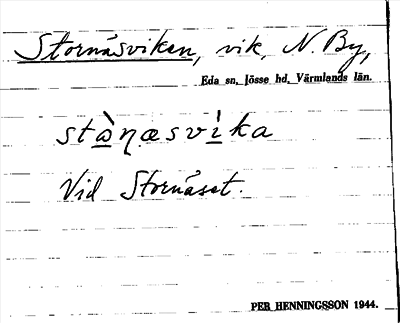 Stornäsviken, vik, N. By,
Eda sn. Jösse hd. Värmlands län.
stàŋæsvìka
Vid Stornäset.
PER HENNINGSSON 1944.